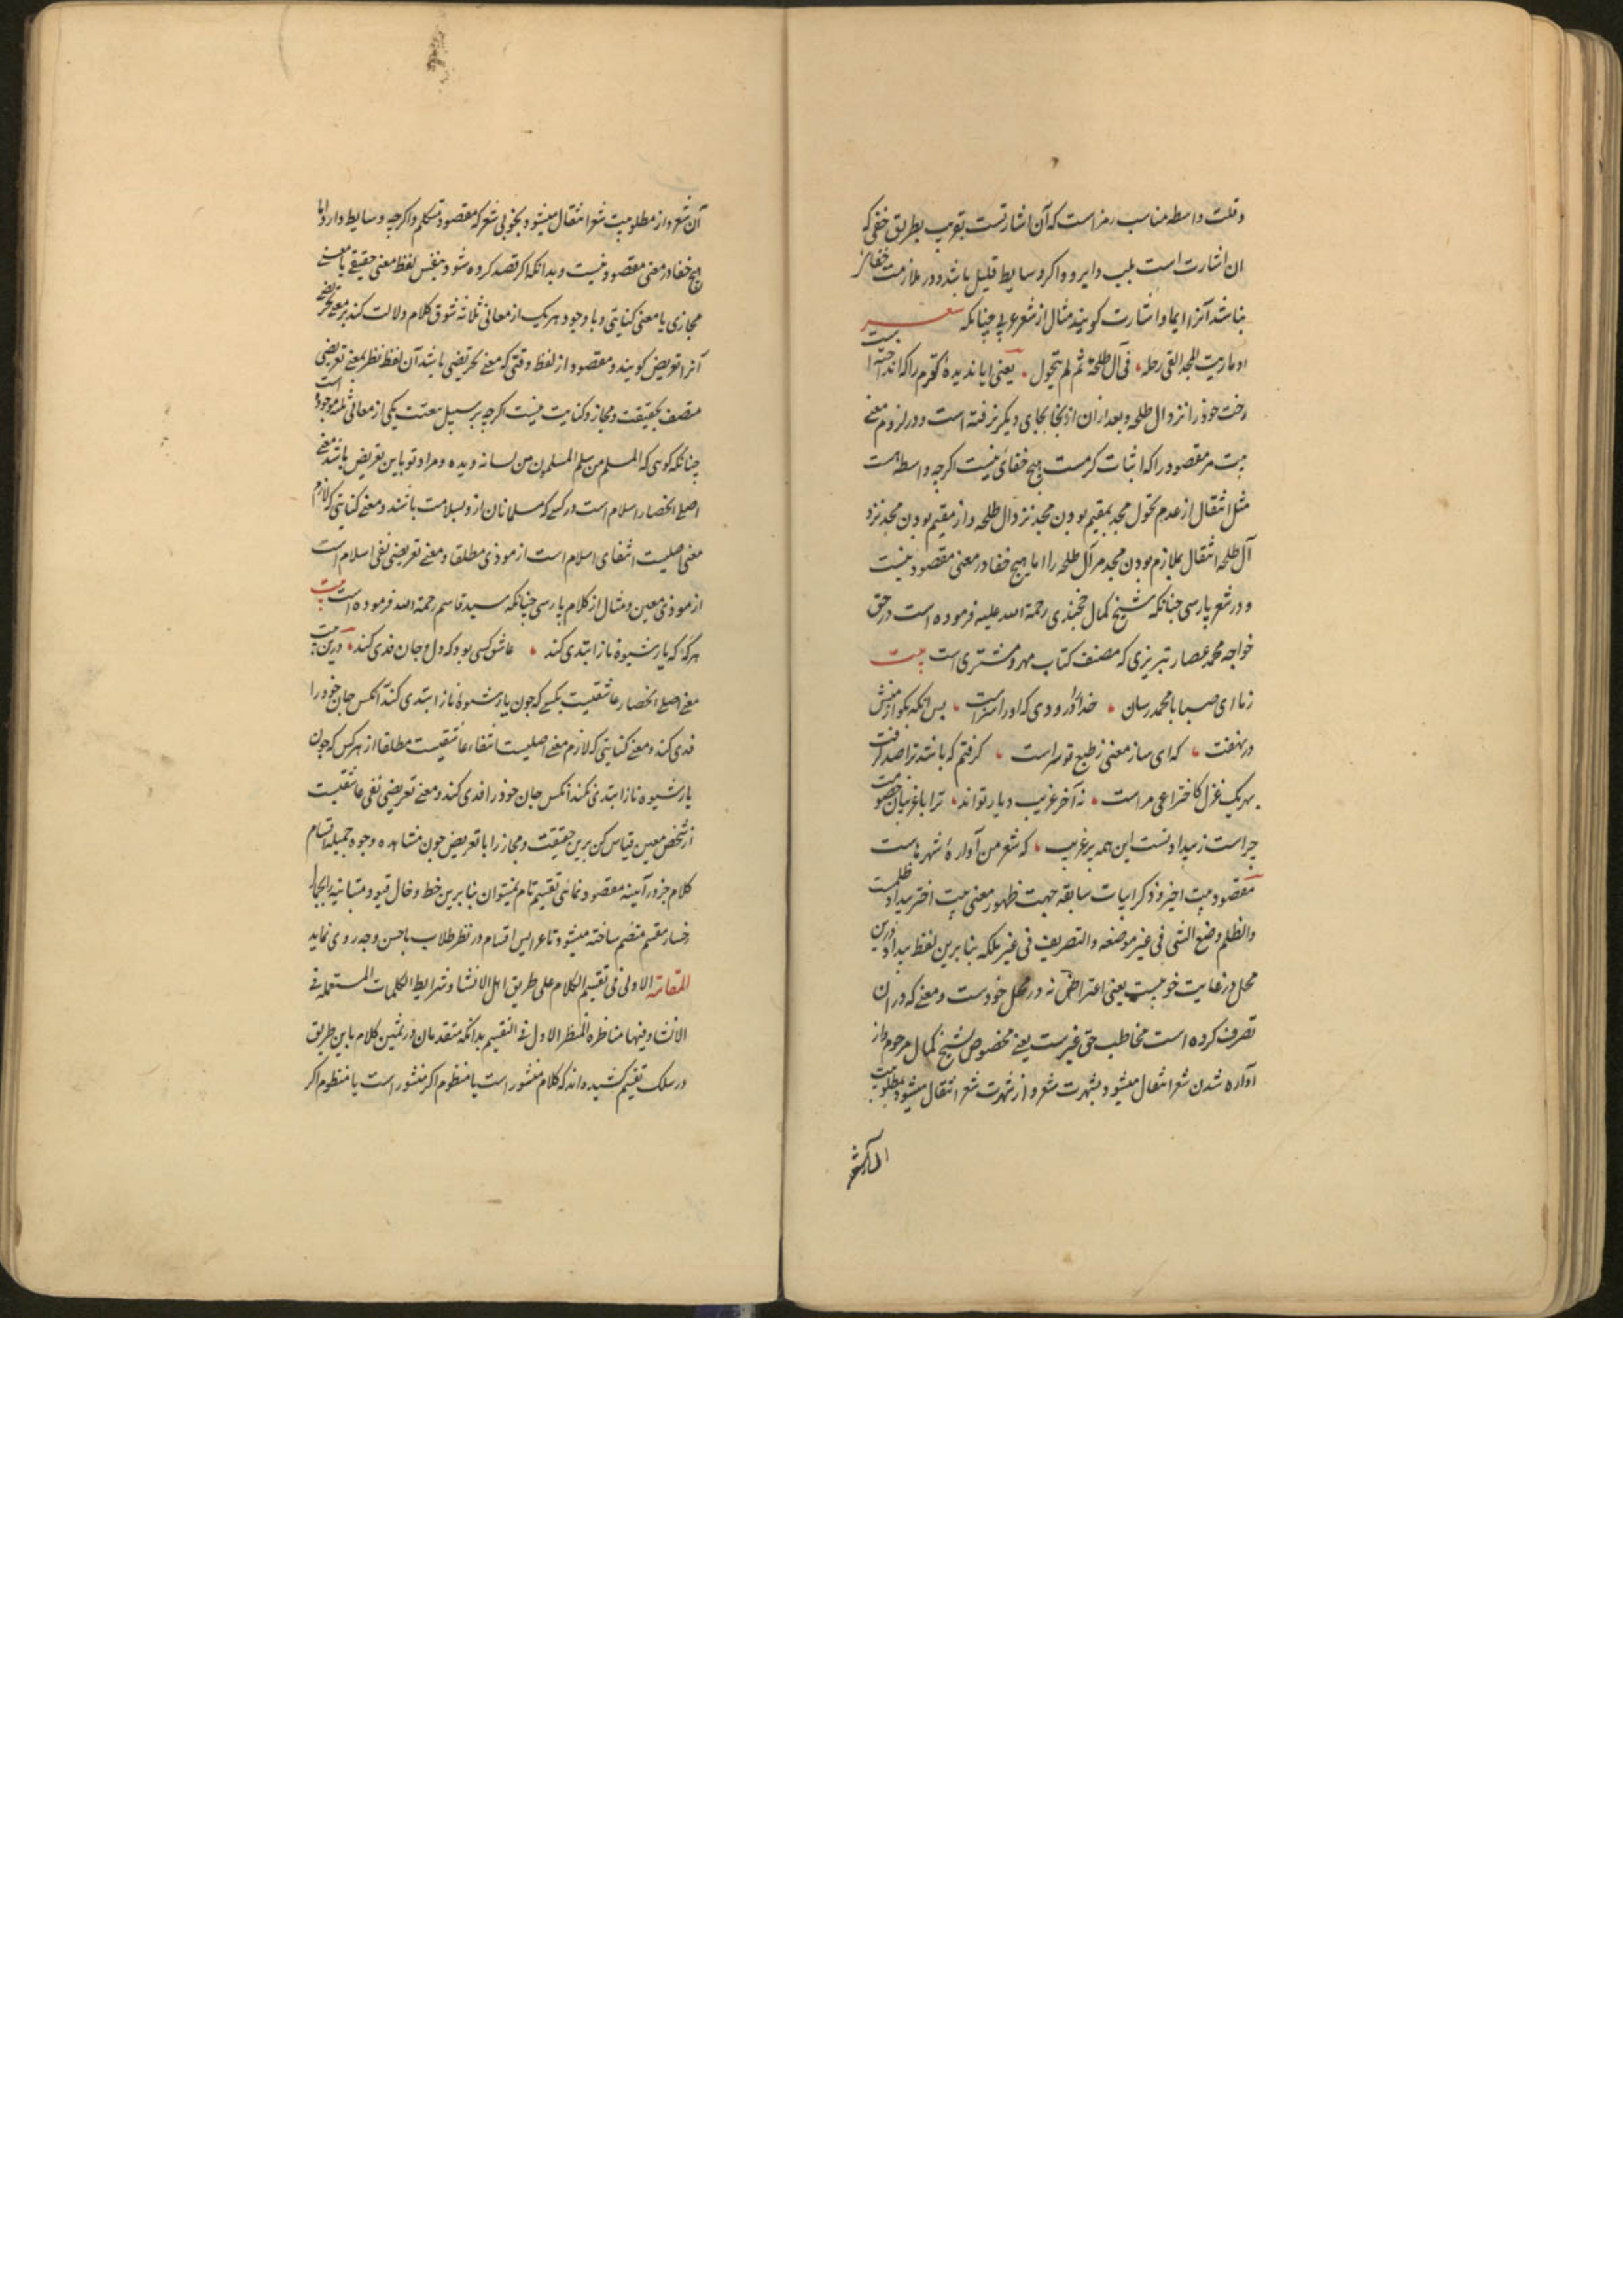 وقلت واسطه مناسب رمز است که آن اشارتست بقریب بطریق خفی که
ان اشارت است بلب وابرو واکر وسایط قلیل باشد ودر ملازمت خفا نیز
نباشد آنرا ایما واشارت کویند مثال از شعر عربی چنانکه شعر
اوما رایت المجد القی رحله فی آل طلحة ثم لم یتحول یعنی ایا ندیدهٔ تو کرم را که انداخت
رخت خود را نزد ال طلحه وبعد ازان ازینجا بجای دیکر نرفته است ودر لزوم معنی
بیت مر مقصود را که اثبات کرمست هیچ خفائی نیست اکرچه واسطه هست
مثل انتقال از عدم تحول مجد بمقیم بودن مجد نزد ال طلحه واز مقیم بودن مجد نزد
آل طلحه انتقال بملازم بودن مجد مر آل طلحه را اما هیچ خفا در معنی مقصود نیست
ودر شعر پارسی چنانکه شیخ کمال خجندی رحمة الله علیه فرموده است در حق
خواجه محمد عصار تبریزی که مصنف کتاب مهر ومشتری است بیت
زما ای صبا با محمد رسان خدا را درودی که او را سزاست پس انکه بکو از منش
در نهفت که ای ساز معنی ز طبع تو راست کرفتم که باشد ترا صد کرفت
بهر یک غزل کاختراعی مراست نه آخر غریب دیار تواند ترا با غریبان خصومت
چراست ز بیداد تست این همه بر غریب که شعر من آوارهٔ شهر هاست
مقصود بیت اخیر وذکر ابیات سابقه جهت ظهور معنی بیت اخیر بیداد ظلمست
والظلم وضع الشی فی غیر موضعه والتصریف فی غیر ملکه بنابرین لفظ بیداد درین
محل در غایت خوبیست یعنی اعتراض نه در محل خودست ومعنی که دران
تصرف کرده است مخاطب حق غیرست یعنی مخصوص شیخ کمال مرحوم واز
آواره شدن شعر انتقال میشود بشهرت شعر واز شهرت شعر انتقال میشود بمطلوبیت
آن شعر واز مطلوبیت شعر انتقال میشود بخوبی شعر که مقصود متکلم واکرچه وسایط دارد اما
هیچ خفا در معنی مقصود نیست وبدانکه اکر قصد کرده شود بنفس لفظ معنی حقیقی یا معنی
مجازی یا معنی کنایتی وبا وجود هر یک از معانی ثلاثه شوق کلام دلالت کند بر معنی تعریضی
آنرا تعریض کویند ومقصود از لفظ وقتی که معنی تعریضی باشد آن لفظ نظر بمعنی تعریضی
متصف بحقیقت ومجاز وکنایت نیست اکرچه بر سبیل معیت یکی از معانی ثلثه موجود است
چنانکه کویی که المسلم من سلم المسلمون من لسانه ویده ومراد تو باین تعریض باشد معنی
اصلی انحصار اسلام است در کسی که مسلمانان ازو بسلامت باشند ومعنی کنایتی که لازم
معنی اصلیست انتفای اسلام است از موذی مطلقا ومعنی تعریضی نفی اسلام است
از موذی معین ومثال از کلام پارسی چنانکه سید قاسم رحمة الله فرموده است بیت
هر که که یار شیوهٔ ناز ابتدی کند عاشق کسی بود که دل وجان فدی کند درین بیت
معنی اصلی انحصار عاشقیست بکسی که چون یار شیوهٔ ناز ابتدی کند آنکس جان خود را
فدی کند ومعنی کنایتی که لازم معنی اصلیست انتفاء عاشقیست مطلقا از هر کس که چون
یار شیوهٔ ناز ابتدی کند آنکس جان خود را فدی نکند ومعنی تعریضی نفی عاشقیست
از شخص معین قیاس کن برین حقیقت ومجاز را با تعریض چون مشاهده وجوه جمیله اقسام
کلام جز در آیینه مقصود نمائی تقسیم تام نمیتوان بنابرین خط وخال قیود متباینه را بجمال
رخسار مقسم منضم ساخته میشود تا عرایس اقسام در نظر طلاب باحسن وجه روی نماید
المقالة الاولی فی تقسیم الکلام علی طریق اهل الانشا وشرایط الکلمات المستعمله فی
الانشا وفیها مناظره المنظر الاول فی التقسیم بدانکه متقدمان در ثمین کلام باین طریق
در سلک تقسیم کشیده اند که کلام منثور است یا منظوم اکر منثور است یا منظوم اکر